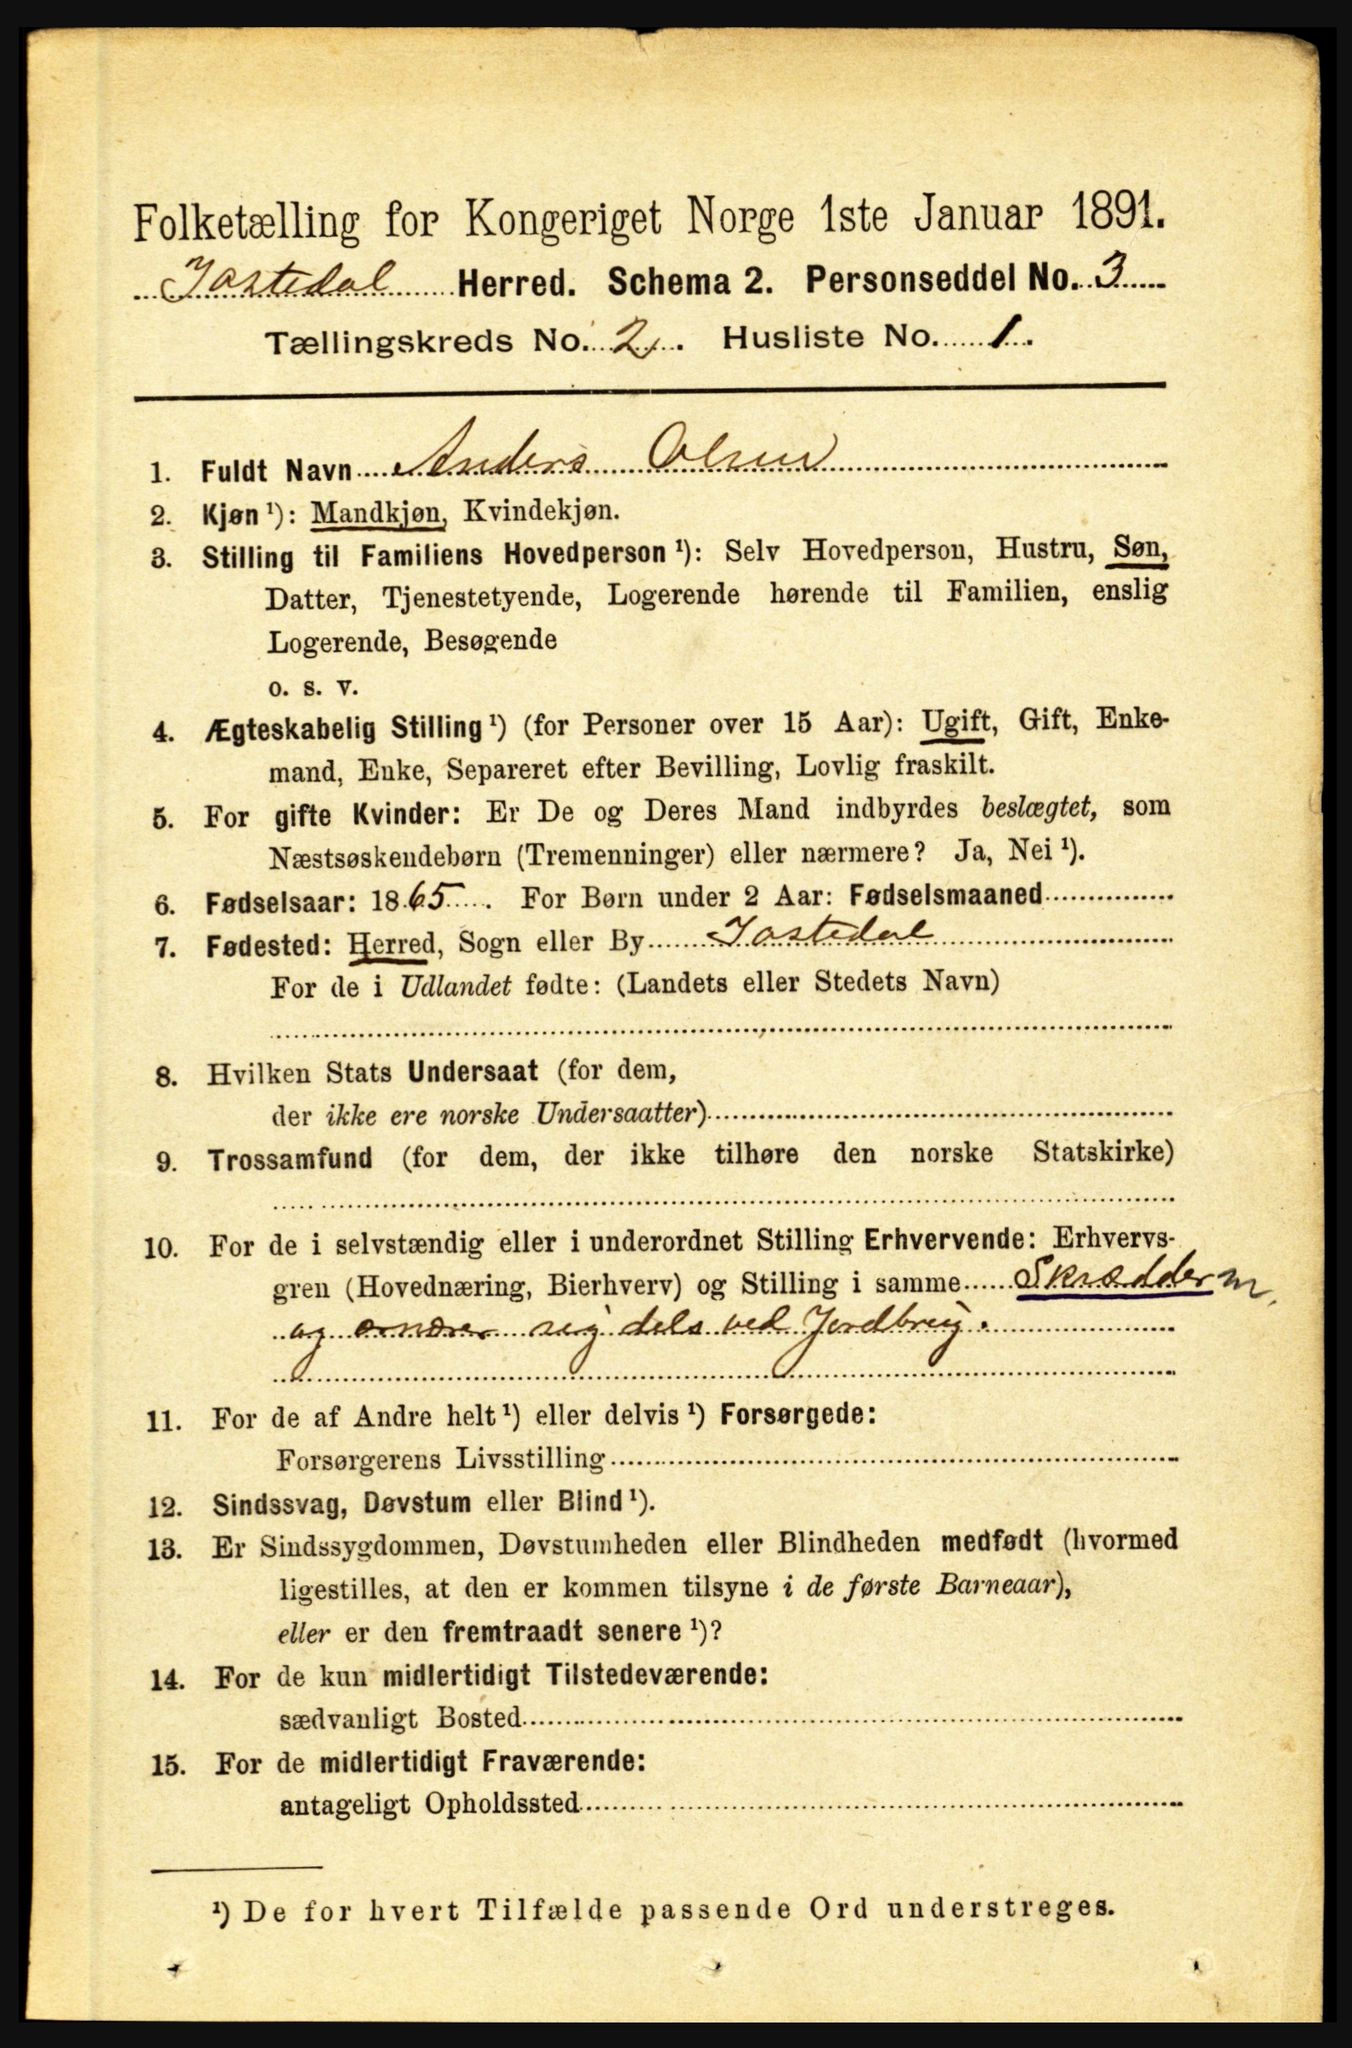 Folketælling for Kongeriget Norge 1ste Januar 1891.
Jostedal Herred. Schema 2. Personseddel No. 3
Tællingskreds No. 2. Husliste No. 1.
1. Fuldt Navn Anders Olsen
2. Kjøn ¹): Mandkjøn, Kvindekjøn.
3. Stilling til Familiens Hovedperson ¹): Selv Hovedperson, Hustru, Søn,
Datter, Tjenestetyende, Logerende hørende til Familien, enslig
Logerende, Besøgende
o. s. v.
4. Ægteskabelig Stilling ¹) (for Personer over 15 Aar): Ugift, Gift, Enke-
mand, Enke, Separeret efter Bevilling, Lovlig fraskilt.
5. For gifte Kvinder: Er De og Deres Mand indbyrdes beslægtet, som
Næstsøskendebørn (Tremenninger) eller nærmere? Ja, Nei ¹).
6. Fødselsaar: 1865. For Børn under 2 Aar: Fødselsmaaned
7. Fødested: Herred, Sogn eller By Jostedal
For de i Udlandet fødte: (Landets eller Stedets Navn)
8. Hvilken Stats Undersaat (for dem,
der ikke ere norske Undersaatter)
9. Trossamfund (for dem, der ikke tilhøre den norske Statskirke)
10. For de i selvstændig eller i underordnet Stilling Erhvervende: Erhvervs-
gren (Hovednæring, Bierhverv) og Stilling i samme Skrædder m
og ernærer sig dels ved Jordbrug.
11. For de af Andre helt ¹) eller delvis ¹) Forsørgede:
Forsørgerens Livsstilling
12. Sindssvag, Døvstum eller Blind ¹).
13. Er Sindssygdommen, Døvstumheden eller Blindheden medfødt (hvormed
ligestilles, at den er kommen tilsyne i de første Barneaar),
eller er den fremtraadt senere ¹)?
14. For de kun midlertidigt Tilstedeværende:
sædvanligt Bosted
15. For de midlertidigt Fraværende:
antageligt Opholdssted
¹) De for hvert Tilfælde passende Ord understreges.